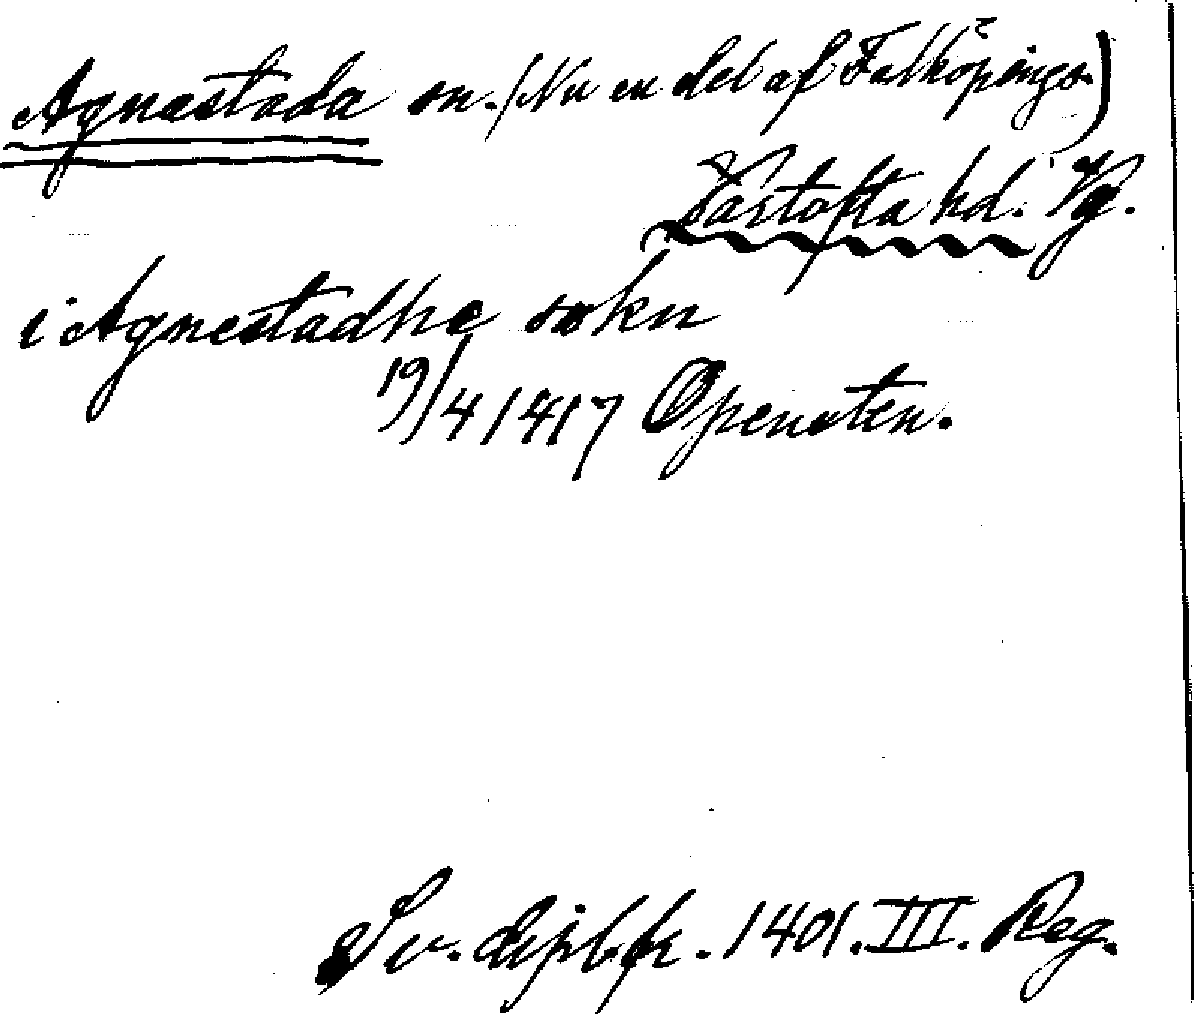 Agnestada sn. (Nu en del af Falköpings)
Vartofta hd. Vg.
i Agnestadhe sokn
19/4 1417 Opensten.
Sv. dipl. fr. 1401. III. Reg.